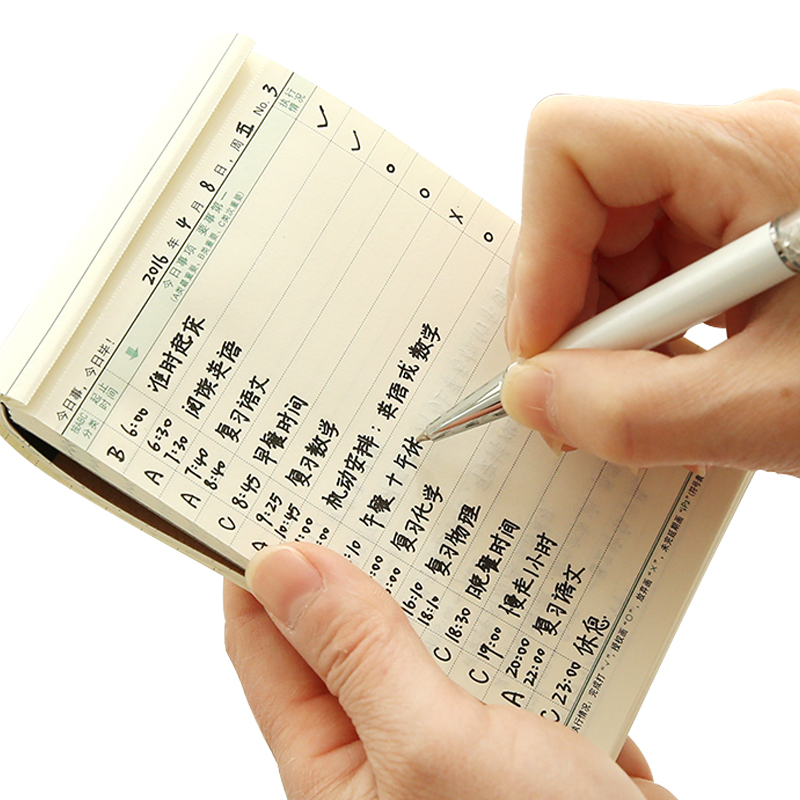 2016 年 4 月 8 日, 周五 No. 3
今日事, 今日毕!
按轻重分类 起止时间 今日事项 要事第一 执行情况
(A类最重要, B类重要, C类次重要)
B 6:00 准时起床 ✓
A 6:30 7:30 阅读英语 ✓
A 7:40 8:40 复习语文 o
C 8:45 早餐时间 o
A 9:25 10:45 复习数学 x
:00 机动安排: 英语或数学 o
:10 午餐+午休
:00 复习化学
16:10 18:10 复习物理
C 18:30 晚餐时间
C 19:00 慢走1小时
A 20:00 22:00 复习语文
C 23:00 休息
执行情况: 完成打 "√", 授权画 "O", 放弃画 "×", 未完延期画